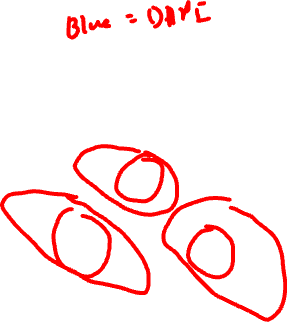 Blue = DAPI